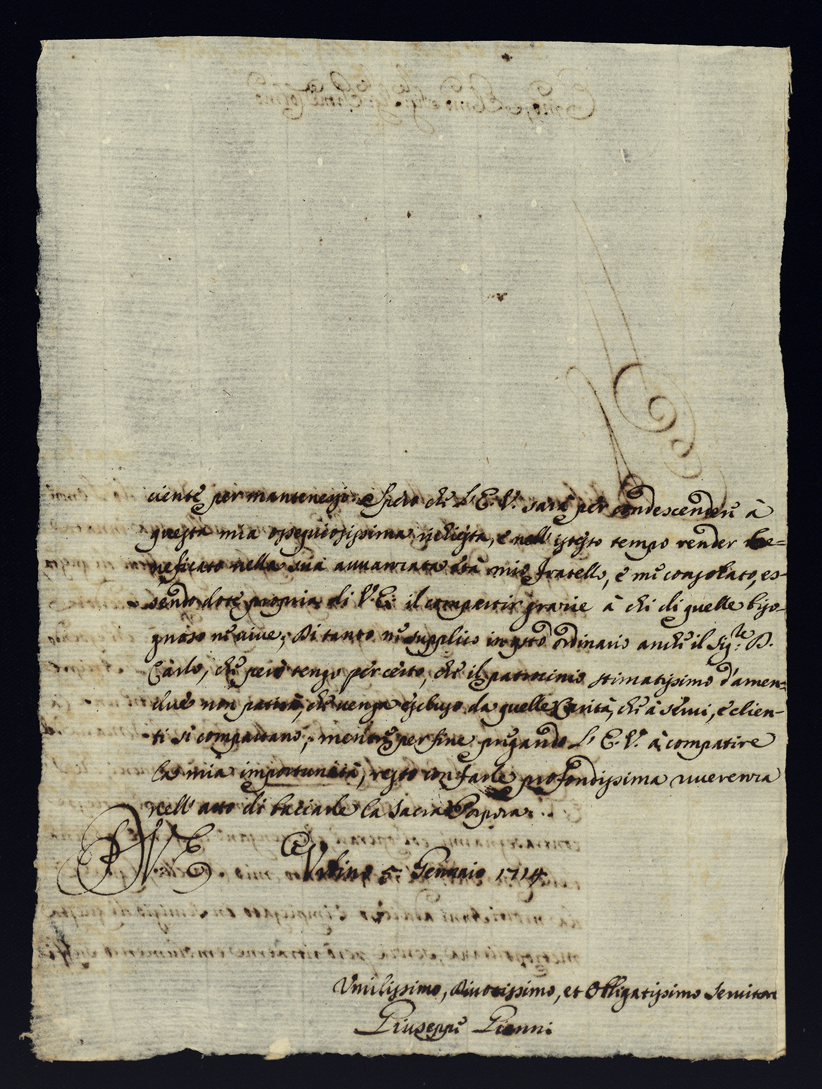 ciente per mantenersi. Spero che l'E. V. sarà per condescendere à
questa mia ossequiosissima richiesta, e nell'istesso tempo render be=
neficato nella sua avvanzata età mio fratello, e me consolato, es=
sendo dote propria di V. E. il compartir grazie à chi di quelle biso=
gnoso ne vive; Di tanto ne supplico in qsto ordinario anche il Sig.re D.
Carlo, che però tengo per certo, che il patrocinio stimatissimo d'amen=
due non patirà, che venga escluso da quelle Carità, che à servi, e clien=
ti si compartano; mentre per fine pregando l'E. V. à compatire
la mia importunità, resto con farle profondissima riverenza
nell'atto di bacciarle la Sacra Porpora.
D V E Urbino 5 Gennaio 1714
Umilissimo, Divotissimo, et Obligatissimo Servitore
Giuseppe Gienni